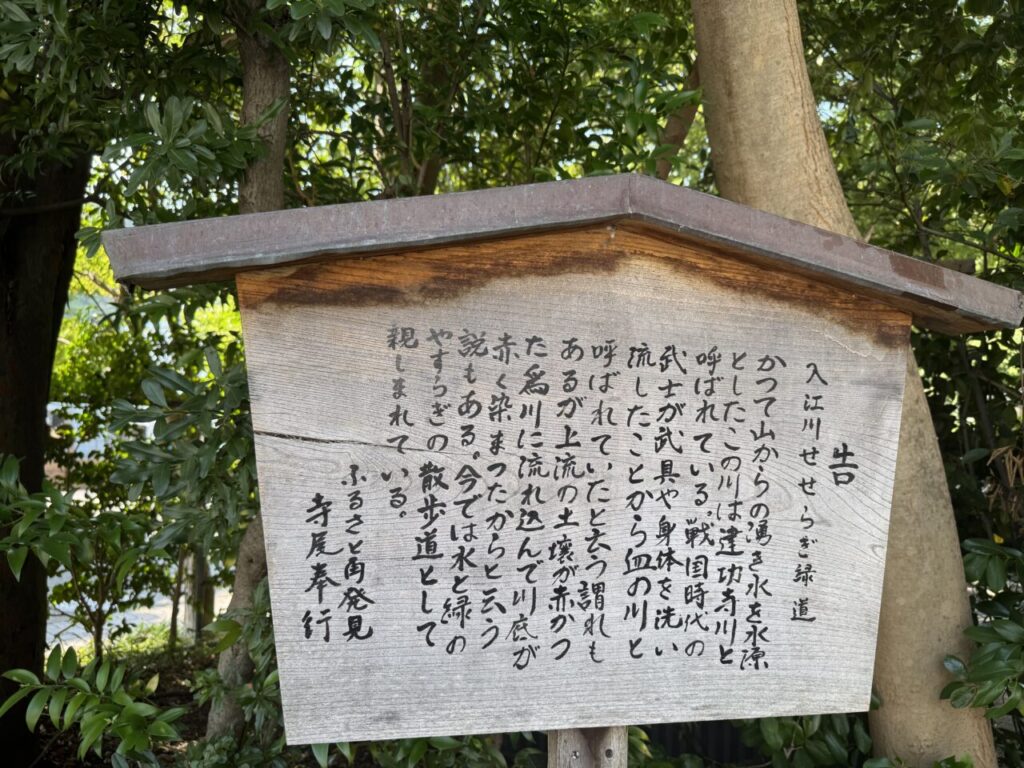 告
入江川せせらぎ緑道
かつて山からの湧き水を水源
としたこの川は建功寺川と
呼ばれている。戦国時代の
武士が武具や身体を洗い
流したことから血の川と
呼ばれていたと云う謂れも
あるが上流の土壌が赤かつ
た為川に流れ込んで川底が
赤く染まつたからと云う
説もある。今では水と緑の
やすらぎの散歩道として
親しまれている。
ふるさと再発見
寺尾奉行